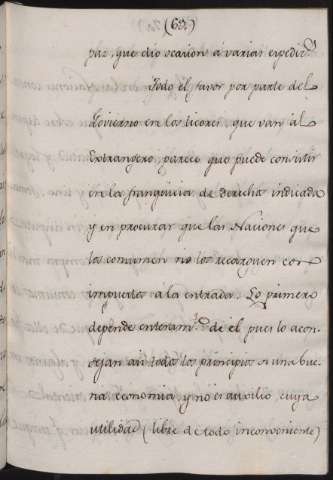 (63)
paz, que dio ocasion a varias expedic.s
Todo el favor por parte del
Govierno en los licores que van al
Extrangero, parece que puede consistir
en la franquicia de derechos indicada
y en procurar que las Naciones que
los consumen no los recarguen con
impuestos a la entrada. Lo primero
depende enteram.te de el pues lo acon-
sejan asi todos los principios de una bue-
na economia, y no es auxilio cuya
utilidad (libre de todo inconveniente)